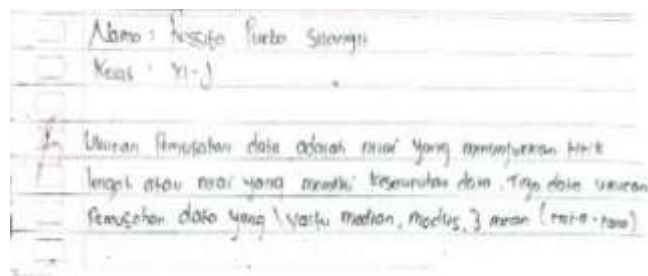 Nama :
Kelas : XI-J
1. Ukuran Pemusatan data adalah nilai yang menunjukkan titik
tengah atau nilai yang memiliki keseluruhan data. Tiga data ukuran
Pemusatan data yang \ yaitu median, modus, } mean (rata-rata)